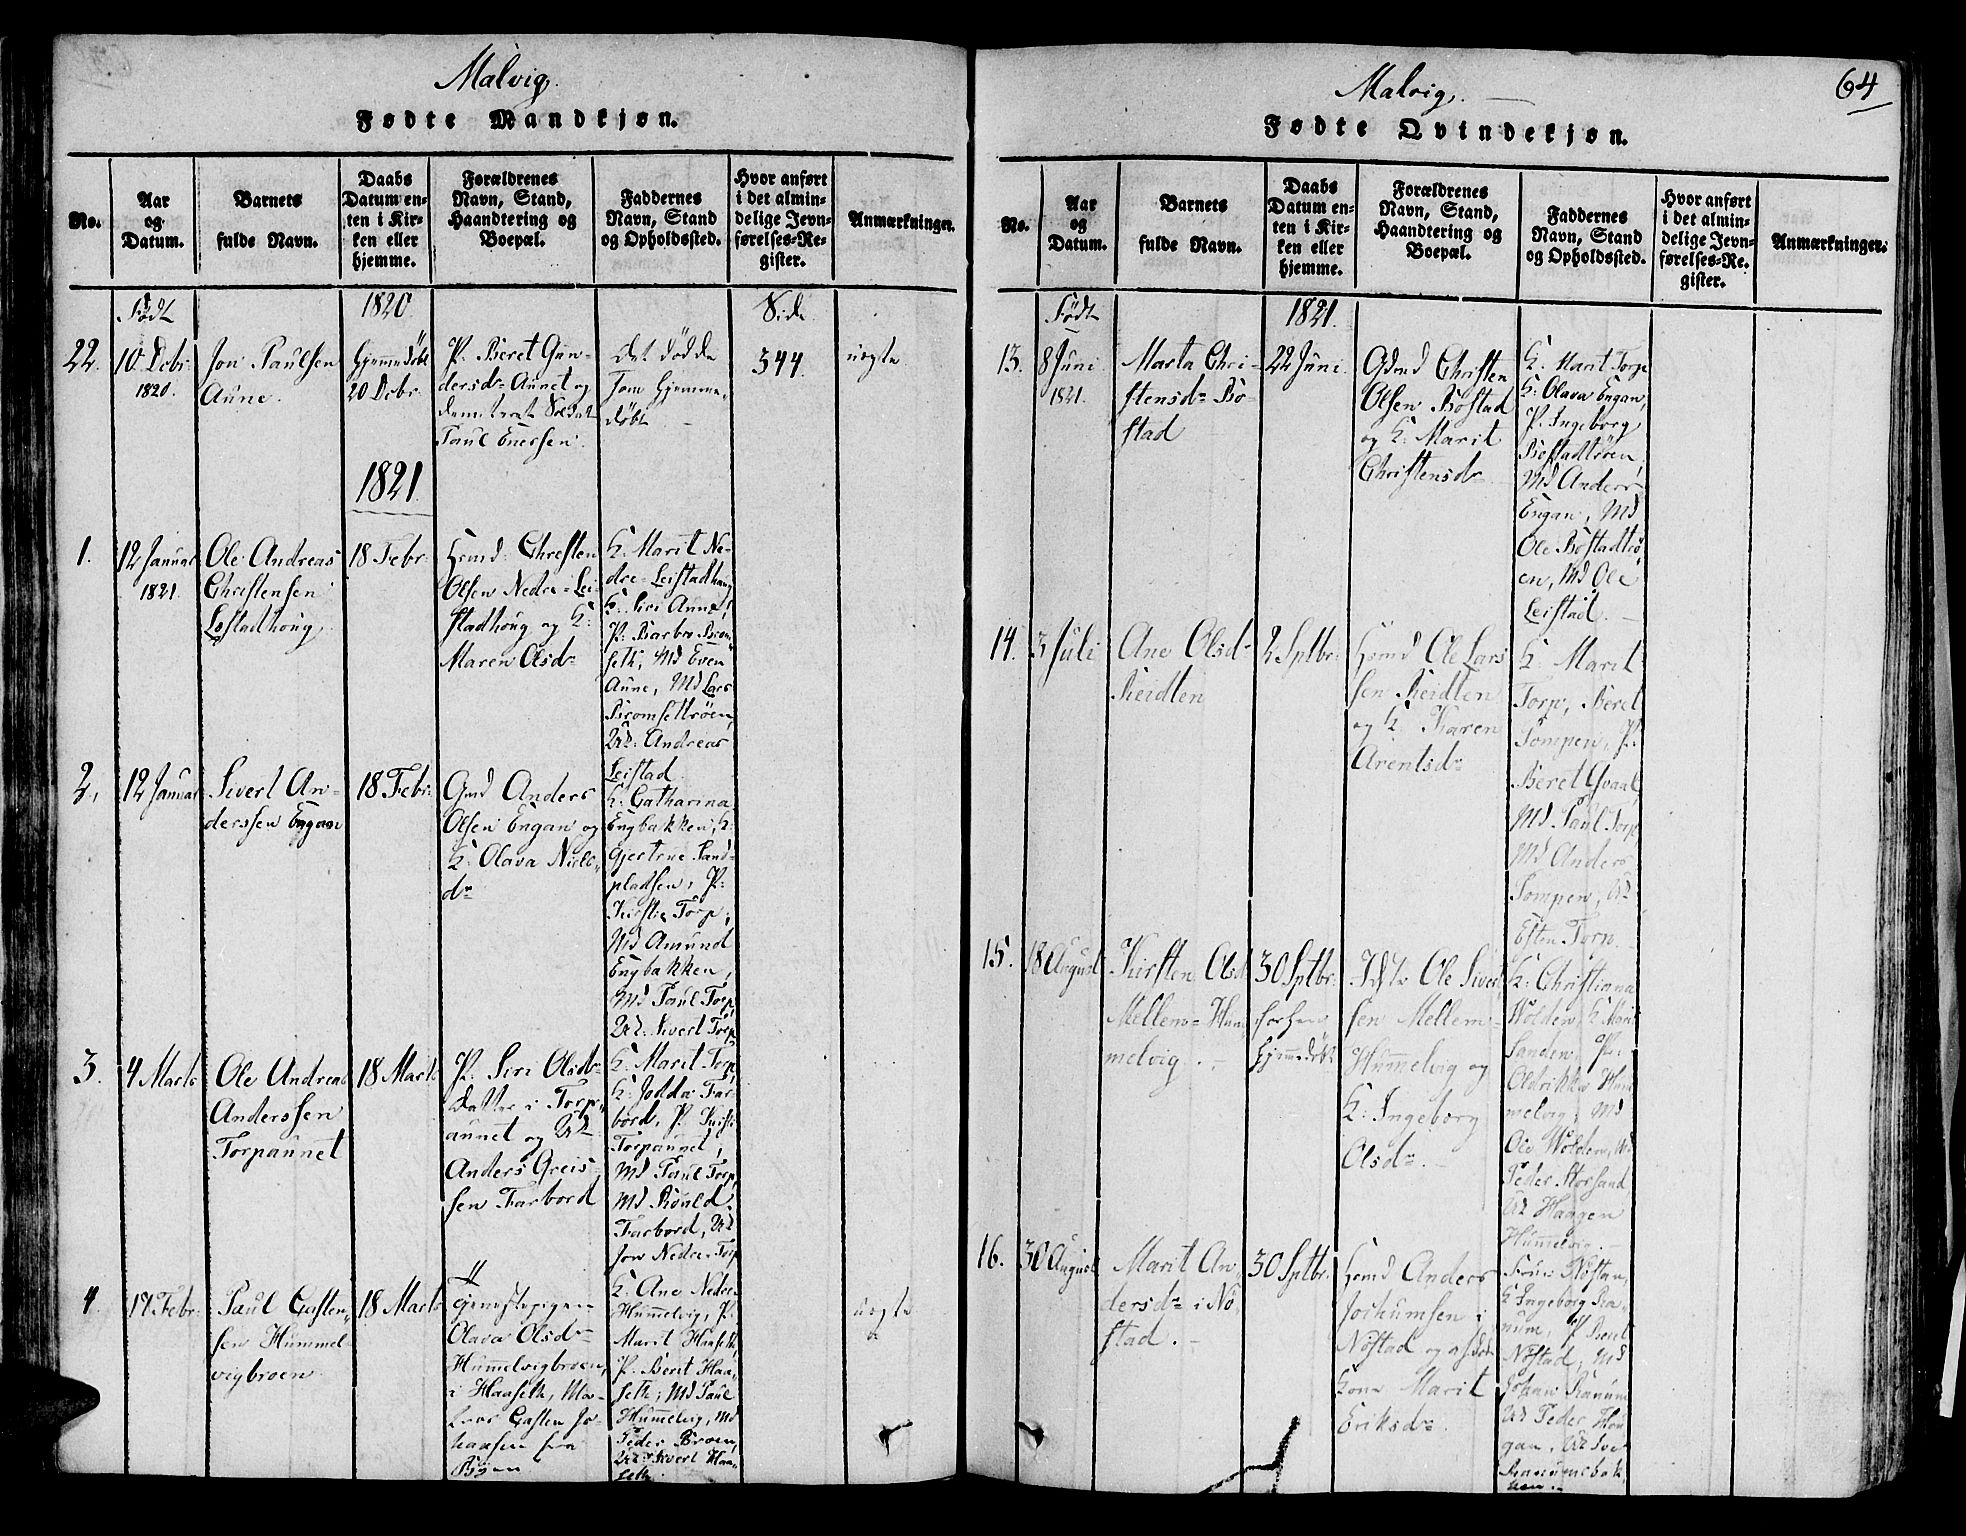 Malvig.
Fødte Mandkjøn.
No.
Aar
og
Datum.
Barnets
fulde Navn.
Daabs
Datum en-
ten i Kir-
ken eller
hjemme.
Forældrenes
Navn, Stand,
Haandtering og
Boepæl.
Faddernes
Navn, Stand
og Opholdssted.
Hvor anført
i det almin-
delige Jevn-
førelses-Re-
gister.
Anmærkninger.
Født
1820
Side
22.
10 Debr
1820.
Jon Paulsen
Aune.
Hjemmedøbt
20 Debr
P. Beret Gun-
dersdr Aunet og
Soldat
Paul Enersen.
det døde
som hjemme-
døbt
344.
uegte
1821.
1.
12 Januar
1821.
Ole Andreas
Christensen
Lestadhoug
18 Febr.
Hsmd: Christen
Olsen Nedre-Lei-
stadhoug og K:
Maren Olsdr
K: Marit Ne-
dre-Leistadhaug
K: Siri Aune,
P: Barbro Brom-
seth, Md Even
Aune, Md Lars
Bromsettrøen,
Uk: Andreas
Leistad.
2.
12 Januar
Sivert An-
derssen Engan
18 Febr.
Gmd Anders
Olsen Engan og
K: Olava Niels-
dr
K: Catharina
Engbakken, K:
Gjertrue Sand-
pladsen, P:
Kirstie Torp,
Md Amund
Engbakken,
Md Paul Torp
Uk: Sivert Torp
3.
4 Marts
Ole Andreas
Anderssen
Torpaunet
18 Marts
P. Siri Olsdr
datter i Torp-
aunet og Uk
Anders Greis-
sen Farbord
K: Marit Torp,
K: Joddæ Far-
bord, P.
Torpaunet,
Md Paul Torp,
Md Roald
Farbord, Uk
Jon Nedre-Torp
4.
17 Febr.
Paul Gasten-
sen Hummel-
vigbroen
18 Marts
Tjenestepigen
Olava Olsdr
Hummelvigbroen,
i Haaseth, Ma-
tros Gasten Jo-
hansen fra
Byen
K. Ane Nedre
Hummelvig, P.
Marit Haaseth,
P. Berit Haa-
seth; Md Paul
Hummelvig, Md
Peder Broen,
Uk: Sivert Haa-
seth.
uegte
Malvig.
64
Fødte Qvindekjøn.
No.
Aar
og
Datum.
Barnets
fulde Navn.
Daabs
Datum en-
ten i Kir-
ken eller
hjemme.
Forældrenes
Navn, Stand,
Haandtering og
Boepæl.
Faddernes
Navn, Stand
og Opholdssted.
Hvor anført
i det almin-
delige Jevn-
førelses-Re-
gister.
Anmærkninger.
Født
1821.
13.
8 Juni
1821.
Marta Chri-
stensdr Bo-
stad
22 Juni.
Gdmd Christen
Olsen Bostad
og K: Marit
Christensdr
K: Marit Torp
K: Olava Engan,
P. Ingeborg
Bostadtrøen,
Md Anders
Engan, Md
Ole Bostadtrø-
en, Md Ole
Leistad.
14.
3 Juli
Ane Olsdr
Reidten
2 Sptbr.
Hsmd Ole Lars
sen Reidten
og K. Karen
Arentsdr
K: Marit
Torp, Beret
Sompen, P.
Beret Qvaal,
Md Paul Torp
Md Anders
Sompen, Uk
Esten Torp.
15.
18 August
Kirsten Olsd
Mellem-Hum
melvig.
30 Sptbr.
forhen
hjemmedøbt
Ole Sivert
sen Mellem-
Hummelvig og
K: Ingeborg
Olsdr.
K: Christiana
Wolden, K Marit
Sanden, P.
Oldrikka Hum
melvig, Md
Ole Wolden, Md
Peder Storsand
Uk Haagen
Hummelvig.
16.
30 August
Marit An-
dersdr i No-
stad.
30 Sptbr.
Hsmd Anders
Jochumsen i
Nøstad og
Kone Marit
Eriksdr
Nøstan,
K Ingeborg Ra-
num, P. Beret
Nøstad, Md
Johan Ranum
Uk Peder Hou-
gan, Uk Sve-
Ranumsbak-
ken.